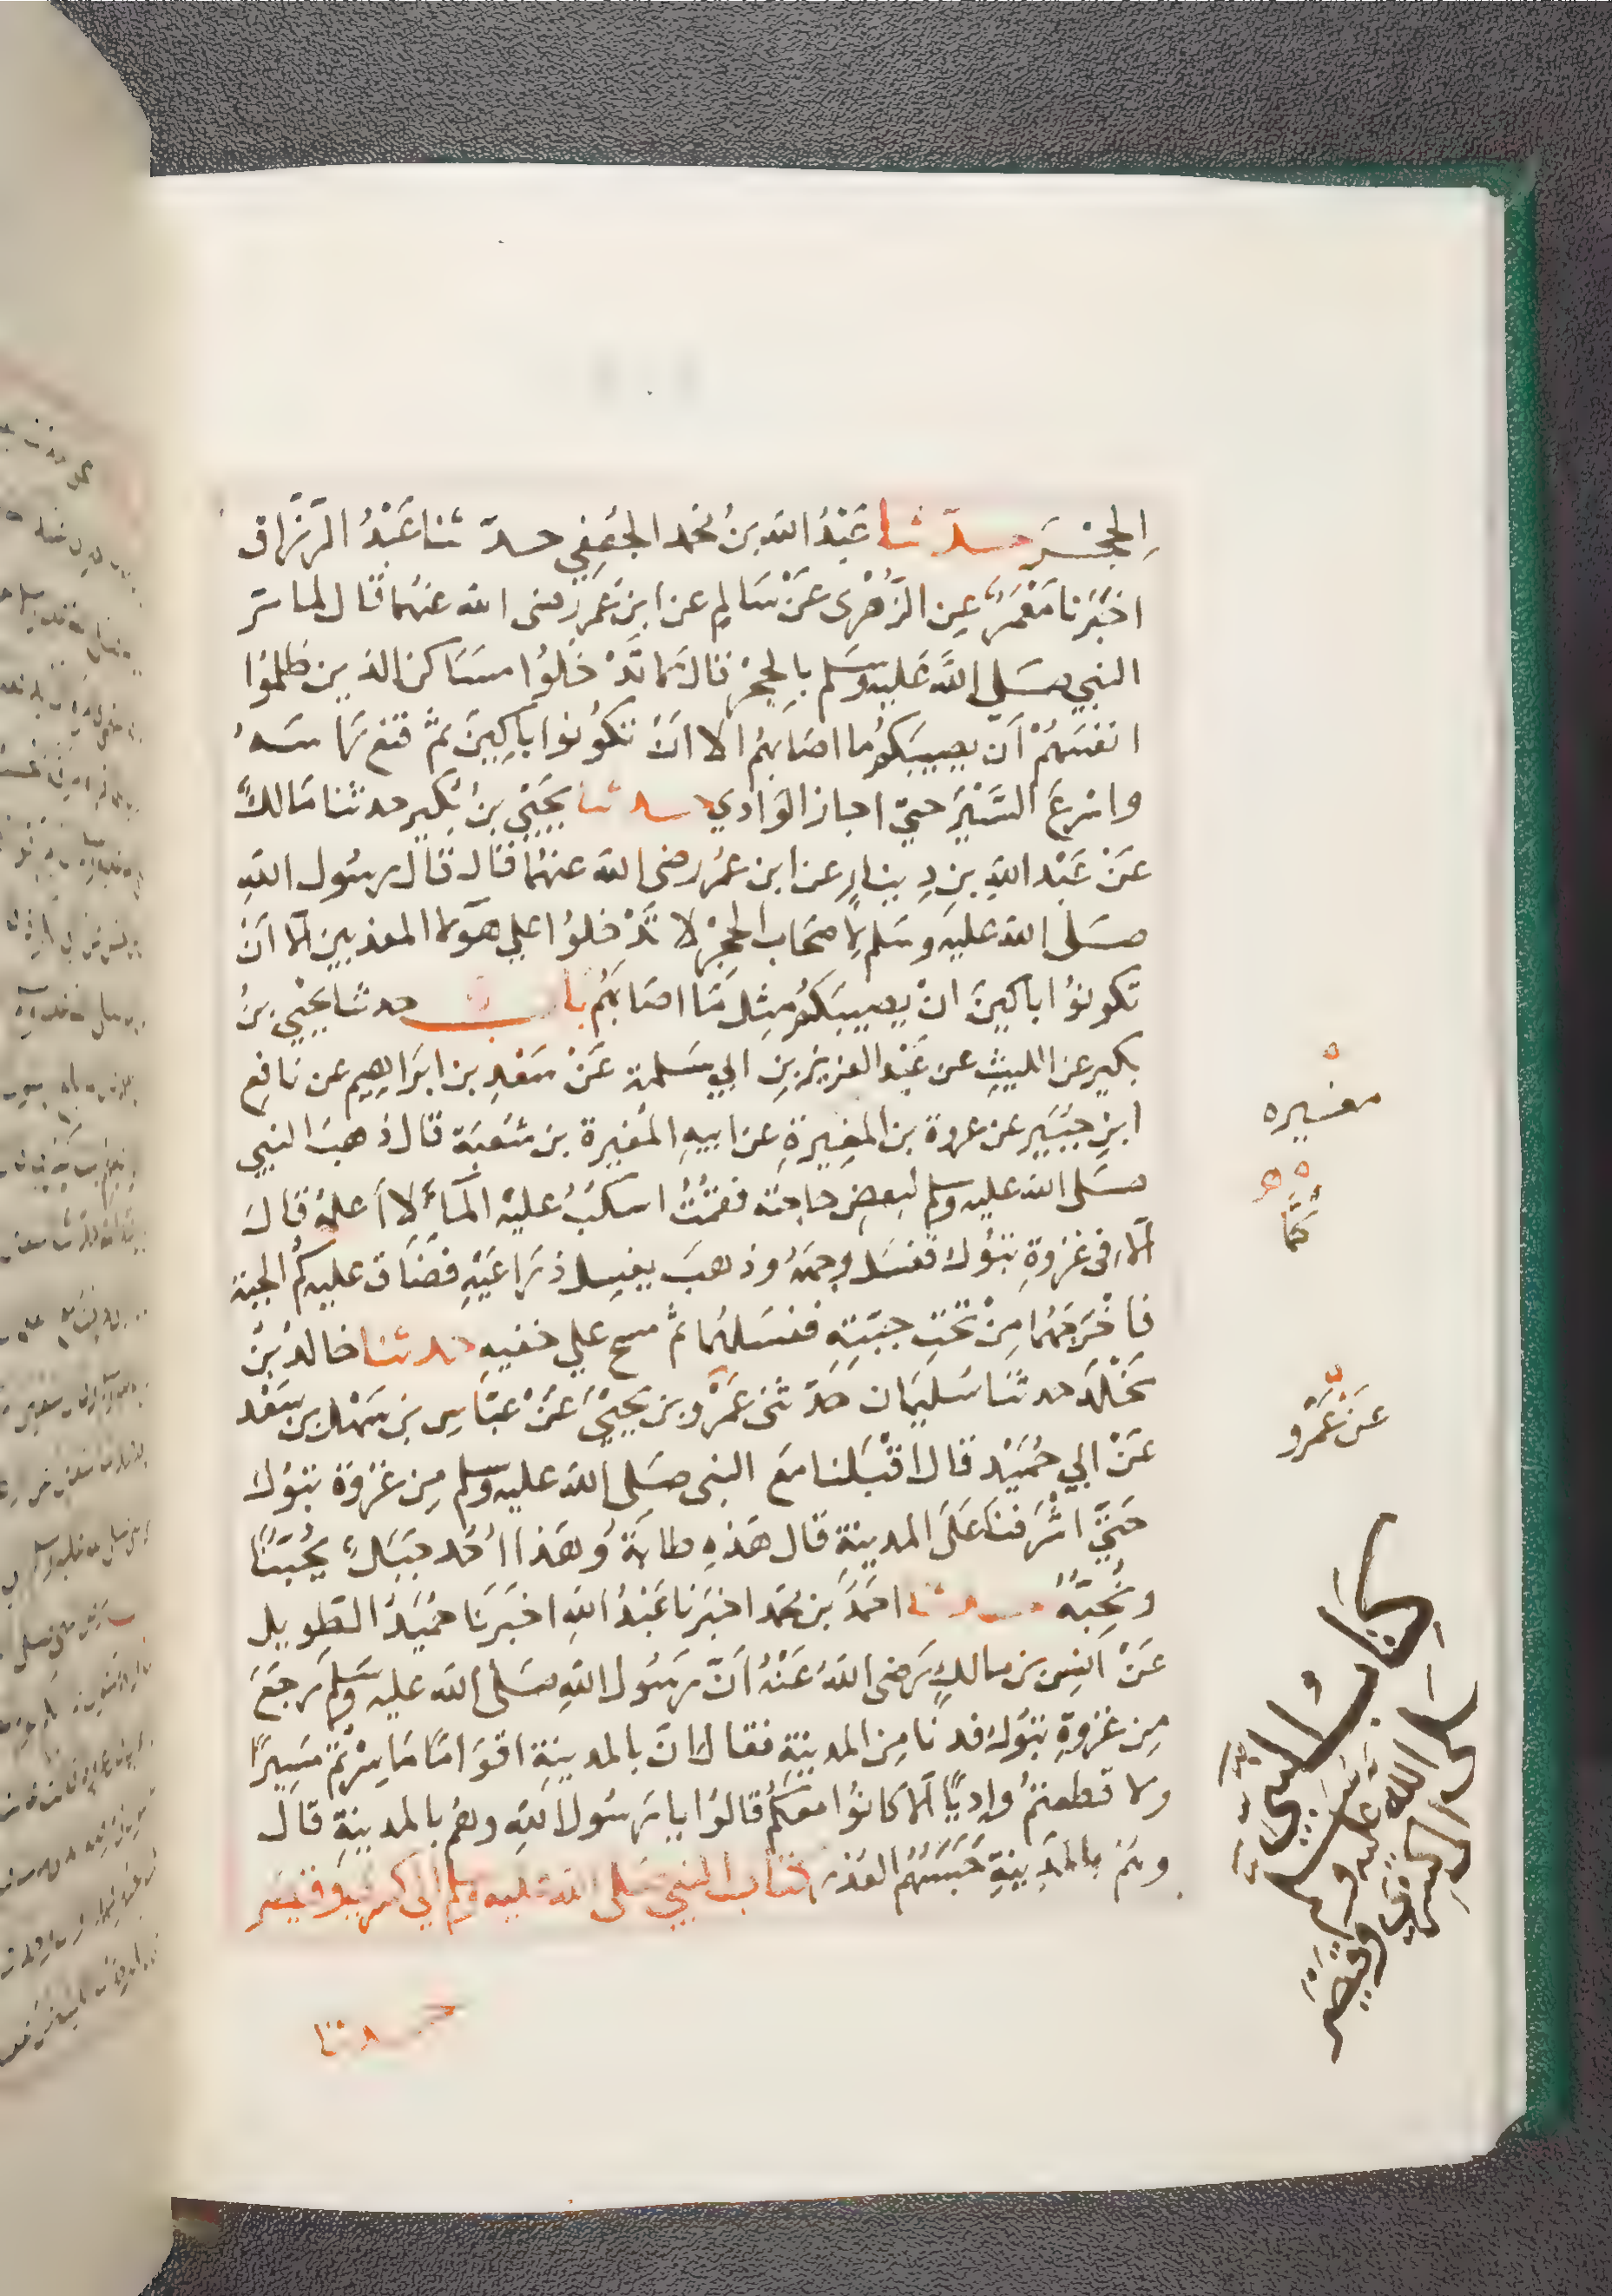 الحِجْرَ حدّثنا عَبْدُ اللَّه بنُ مُحَمَّد الجُعْفِي حدّثنا عَبْدُ الرَّزَّاق
اخْبَرَنا مَعْمَرٌ عَنِ الزُّهْرِى عَنْ سَالِمٍ عن ابن عُمَرَ رَضى الله عنهُمَا قال لما مَرَّ
النبي صَلى اللَّه عَليه وسَلم بِالحِجْرِ قال لَا تَدْخُلُوا مسَاكن الذين ظلمُوا
انفسَهُمْ أن يصيبَكُم ما اصَابَهُمُ الا انْ تَكُونُوا بَاكِينَ ثمَّ قنع رَاسَهُ
واسْرعَ السَّيْرَ حتيّ اجاز الوَادي حدثنا يَحْييَ بنُ بُكَير حدثنا مَالكٌ
عَنْ عَبْد اللَّهِ بنِ دِينارٍ عن ابن عُمَرَ رضى اللَّه عنهُمَا قال قال رسُول اللَّهِ
صَلى اللَّه عليه وسَلم لِاصحَاب الحِجْرِ لا تَدْخلُوا علي هَؤلا المعذبين الا انْ
تكونوُا باكينَ انْ يصيبَكُم مِثلُ مَا اصَابَهُم بابٌ حدثنا يَحْيي بنُ
بكير عن الليثِ عن عَبْد العَزيز بنِ ابي سَلمة عَنْ سَعْدِ بن ابرَاهِيم عن نَافِع
ابنِ جُبَيرٍ عن عروة بن المغِيرةِ عن ابيهِ المُغيرة بن شعْبَة قال ذهبَ النبي
صَلى اللَّه عليه وسلم لبَعضِ حاجته فقمْتُ اسكُبُ عَليْه المَآءَ لَا أَعلمُهُ قَالَ
الا في غزوةِ تبُوك فغسَل وجهَهُ وذهبَ يغسِل ذرَاعَيْهِ فضَاقَ عليه كُمُّ الجبة
فاخْرَجَهُما مِنْ تحْتِ جبّتِهِ فغسَلهُمَا ثمَّ مسح علي خفيهِ حدثنا خالدُ بنُ
مَخْلَد حدثنَا سُليمَان حَدّثنى عَمْرو بن يَحْييَ عَنْ عَبَّاسِ بن سَهْل بن سَعْد
عَنْ ابي حُمَيْد قال اقْبَلنا مَعَ النبى صَلى اللَّه عليه وسلم مِن غزْوة تبُوك
حَتيّ اشْرَفنَا عَلَى المدينة قال هَذِهِ طابَة وهَذا احُد جَبَلٌ يُحِبّنَا
ونُحِبّهُ حدثنا احمَدُ بن مُحمد اخبرَنا عَبْدُ اللَّهِ اخبَرَنَا حُمَيْدٌ الطويل
عَنْ انَسِ بن مالكٍ رَضى اللَّهُ عَنْهُ انَّ رسُول اللَّهِ صَلى اللَّه عليه وسَلم رَجَعَ
مِن غزوةِ تبُوك فدنَا مِن المدينةِ فقال انّ بالمدينةِ اقوَامًا مَا سِرْتمْ مَسِيرًا
ولا قطعتمُ وادِيًا الا كانوُا معَكُمْ قالوُا يا رسُولَ اللَّهِ وهُمْ بالمدينةِ قَال
وهُم بالمَدِينةِ حَبَسَهُمُ العذر كتاب النبي صَلى اللَّه عليه وسلم الى كسرى وقيصر
حدثنا
مغيره
كُمَّا
عَنْ عَمْرٍو
كِتَابُ النبيّ
صلى الله عليه وسلم
الى كسرى وقيصَر